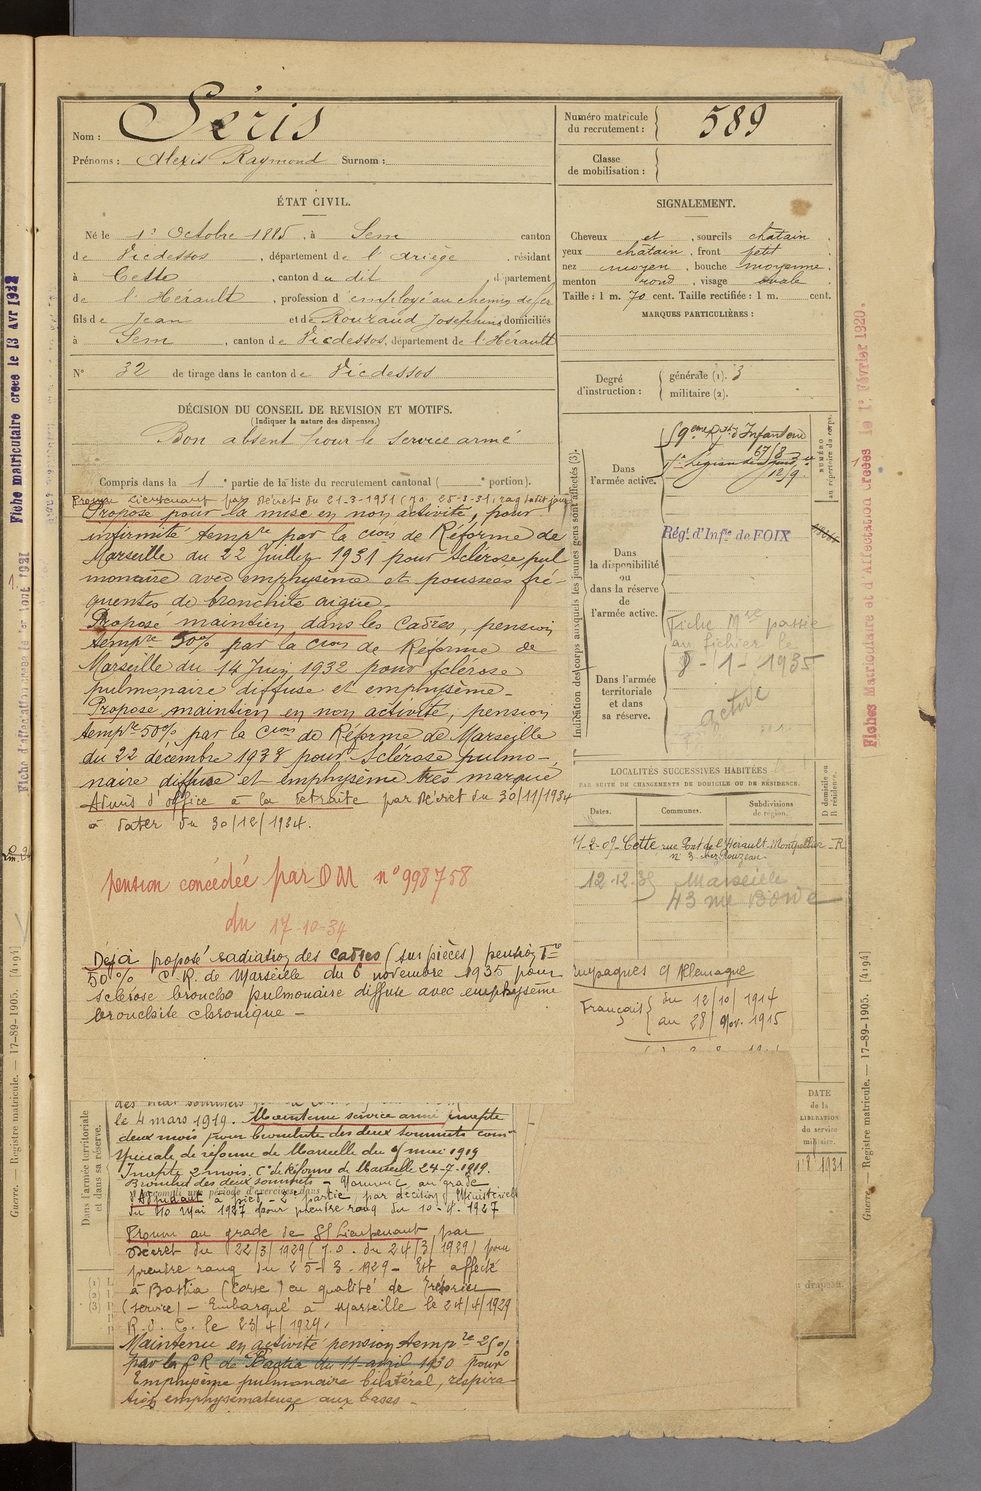 Nom : Séris
Prénoms : Alexis Raymond Surnom :
Numéro matricule du recrutement : 589
Classe de mobilisation :
ÉTAT CIVIL.
Né le 1er Octobre 1885, à Sem canton
de Vicdessos, département de l'Ariège, résidant
à Cette, canton du dit, département
de l'Hérault, profession d'employé au chemin de fer
fils de Jean et de Rouzaud Josephine domiciliés
à Sem, canton de Vicdessos, département de l'Hérault
N° 32 de tirage dans le canton de Vicdessos
SIGNALEMENT.
Cheveux et, sourcils châtain
yeux châtain, front petit
nez moyen, bouche moyenne,
menton rond, visage ovale
Taille : 1 m. 70 cent. Taille rectifiée : 1 m. cent.
MARQUES PARTICULIÈRES :
Degré d'instruction : générale (1). 3
militaire (2).
DÉCISION DU CONSEIL DE REVISION ET MOTIFS.
(Indiquer la nature des dispenses.)
Bon absent pour le service armé
Compris dans la 1re partie de la liste du recrutement cantonal ( e portion).
Promu Lieutenant par décret du 21-3-1931 (JO, 25-3-31)
Propose pour la mise en non activité, pour
infirmité tempre par la Cion de Réforme de
Marseille du 22 Juillet 1931 pour sclérose pul
monaire avec emphysème et poussées fré
quentes de bronchite aigue.
Propose maintien dans les Cadres, pension
tempre 50% par la Cion de Réforme de
Marseille du 14 Juin 1932 pour sclérose
pulmonaire diffuse et emphysème -
Propose maintien en non activité, pension
tempre 50% par la Cion de Réforme de Marseille
du 22 décembre 1933 pour Sclérose pulmo-
naire diffuse et emphysème très marqué
Admis d'office à la retraite par décret du 30/11/1934
à dater du 30/12/1934.
pension concédée par DM n° 998758
du 17-10-34
Déjà proposé radiation des cadres (sur pièces) pension Tre
50% C.R. de Marseille du 6 novembre 1935 pour
sclérose broncho pulmonaire diffuse avec emphysème
bronchite chronique -
le 4 mars 1919. Maintenu service armé inapte
deux mois pour bronchite des deux sommets com-
spéciale de réforme de Marseille du 9 mai 1919
Inapte 2 mois. C. de Réforme de Marseille 24-7-1919.
Bronchite des deux sommets - Nommé au grade
d'Adjudant à pied - 2e partie, par décision Ministérielle
du 10 Mai 1927 pour prendre rang du 10-4-1927
Promu au grade de S/ Lieutenant, par
Décret du 22/3/1929 (J.O. du 24/3/1929) pour
prendre rang du 25-3-1929 - Est affecté
à Bastia (Corse) en qualité de Trésorier
(service) - Embarqué à Marseille le 24/4/1929
R.d. C. le 25/4/1929.
Maintenu en activité pension tempre 25%
par la CR de Bastia du 11 avril 1930 pour
Emphysème pulmonaire bilatéral, respira-
tion emphysémateuse aux bases -
Indication des corps auxquels les jeunes gens sont affectés (3).
Dans l'armée active.
59ème Régt d'Infanterie
NUMÉRO au répertoire du corps.
Dans la disponibilité ou dans la réserve de l'armée active.
Rég. d'Infie de FOIX
Fiche Mle passée
au fichier le
8-1-1935
active
Dans l'armée territoriale et dans sa réserve.
LOCALITÉS SUCCESSIVES HABITÉES
PAR SUITE DE CHANGEMENTS DE DOMICILE OU DE RÉSIDENCE.
Dates. Communes. Subdivisions de région. D domicile ou R résidence.
Cette rue Pont de l'Hérault Montpellier R
n° 3 chez Rouzeau
12.12.35 Marseille
43 rue Borde
Campagnes C/ Allemagne
Français du 12/10/1914
au 28/Nov. 1915
DATE de la LIBÉRATION du service militaire.
Dans l'armée territoriale et dans sa réserve.
Fiche matriculaire créée le 13 Avr 1922
Fiches Matriculaire et d'Affectation créées le 1er Février 1920.
Guerre. — Registre matricule. — 17-89-1905. [4194]
Guerre. — Registre matricule. — 17-89-1905. [4194]